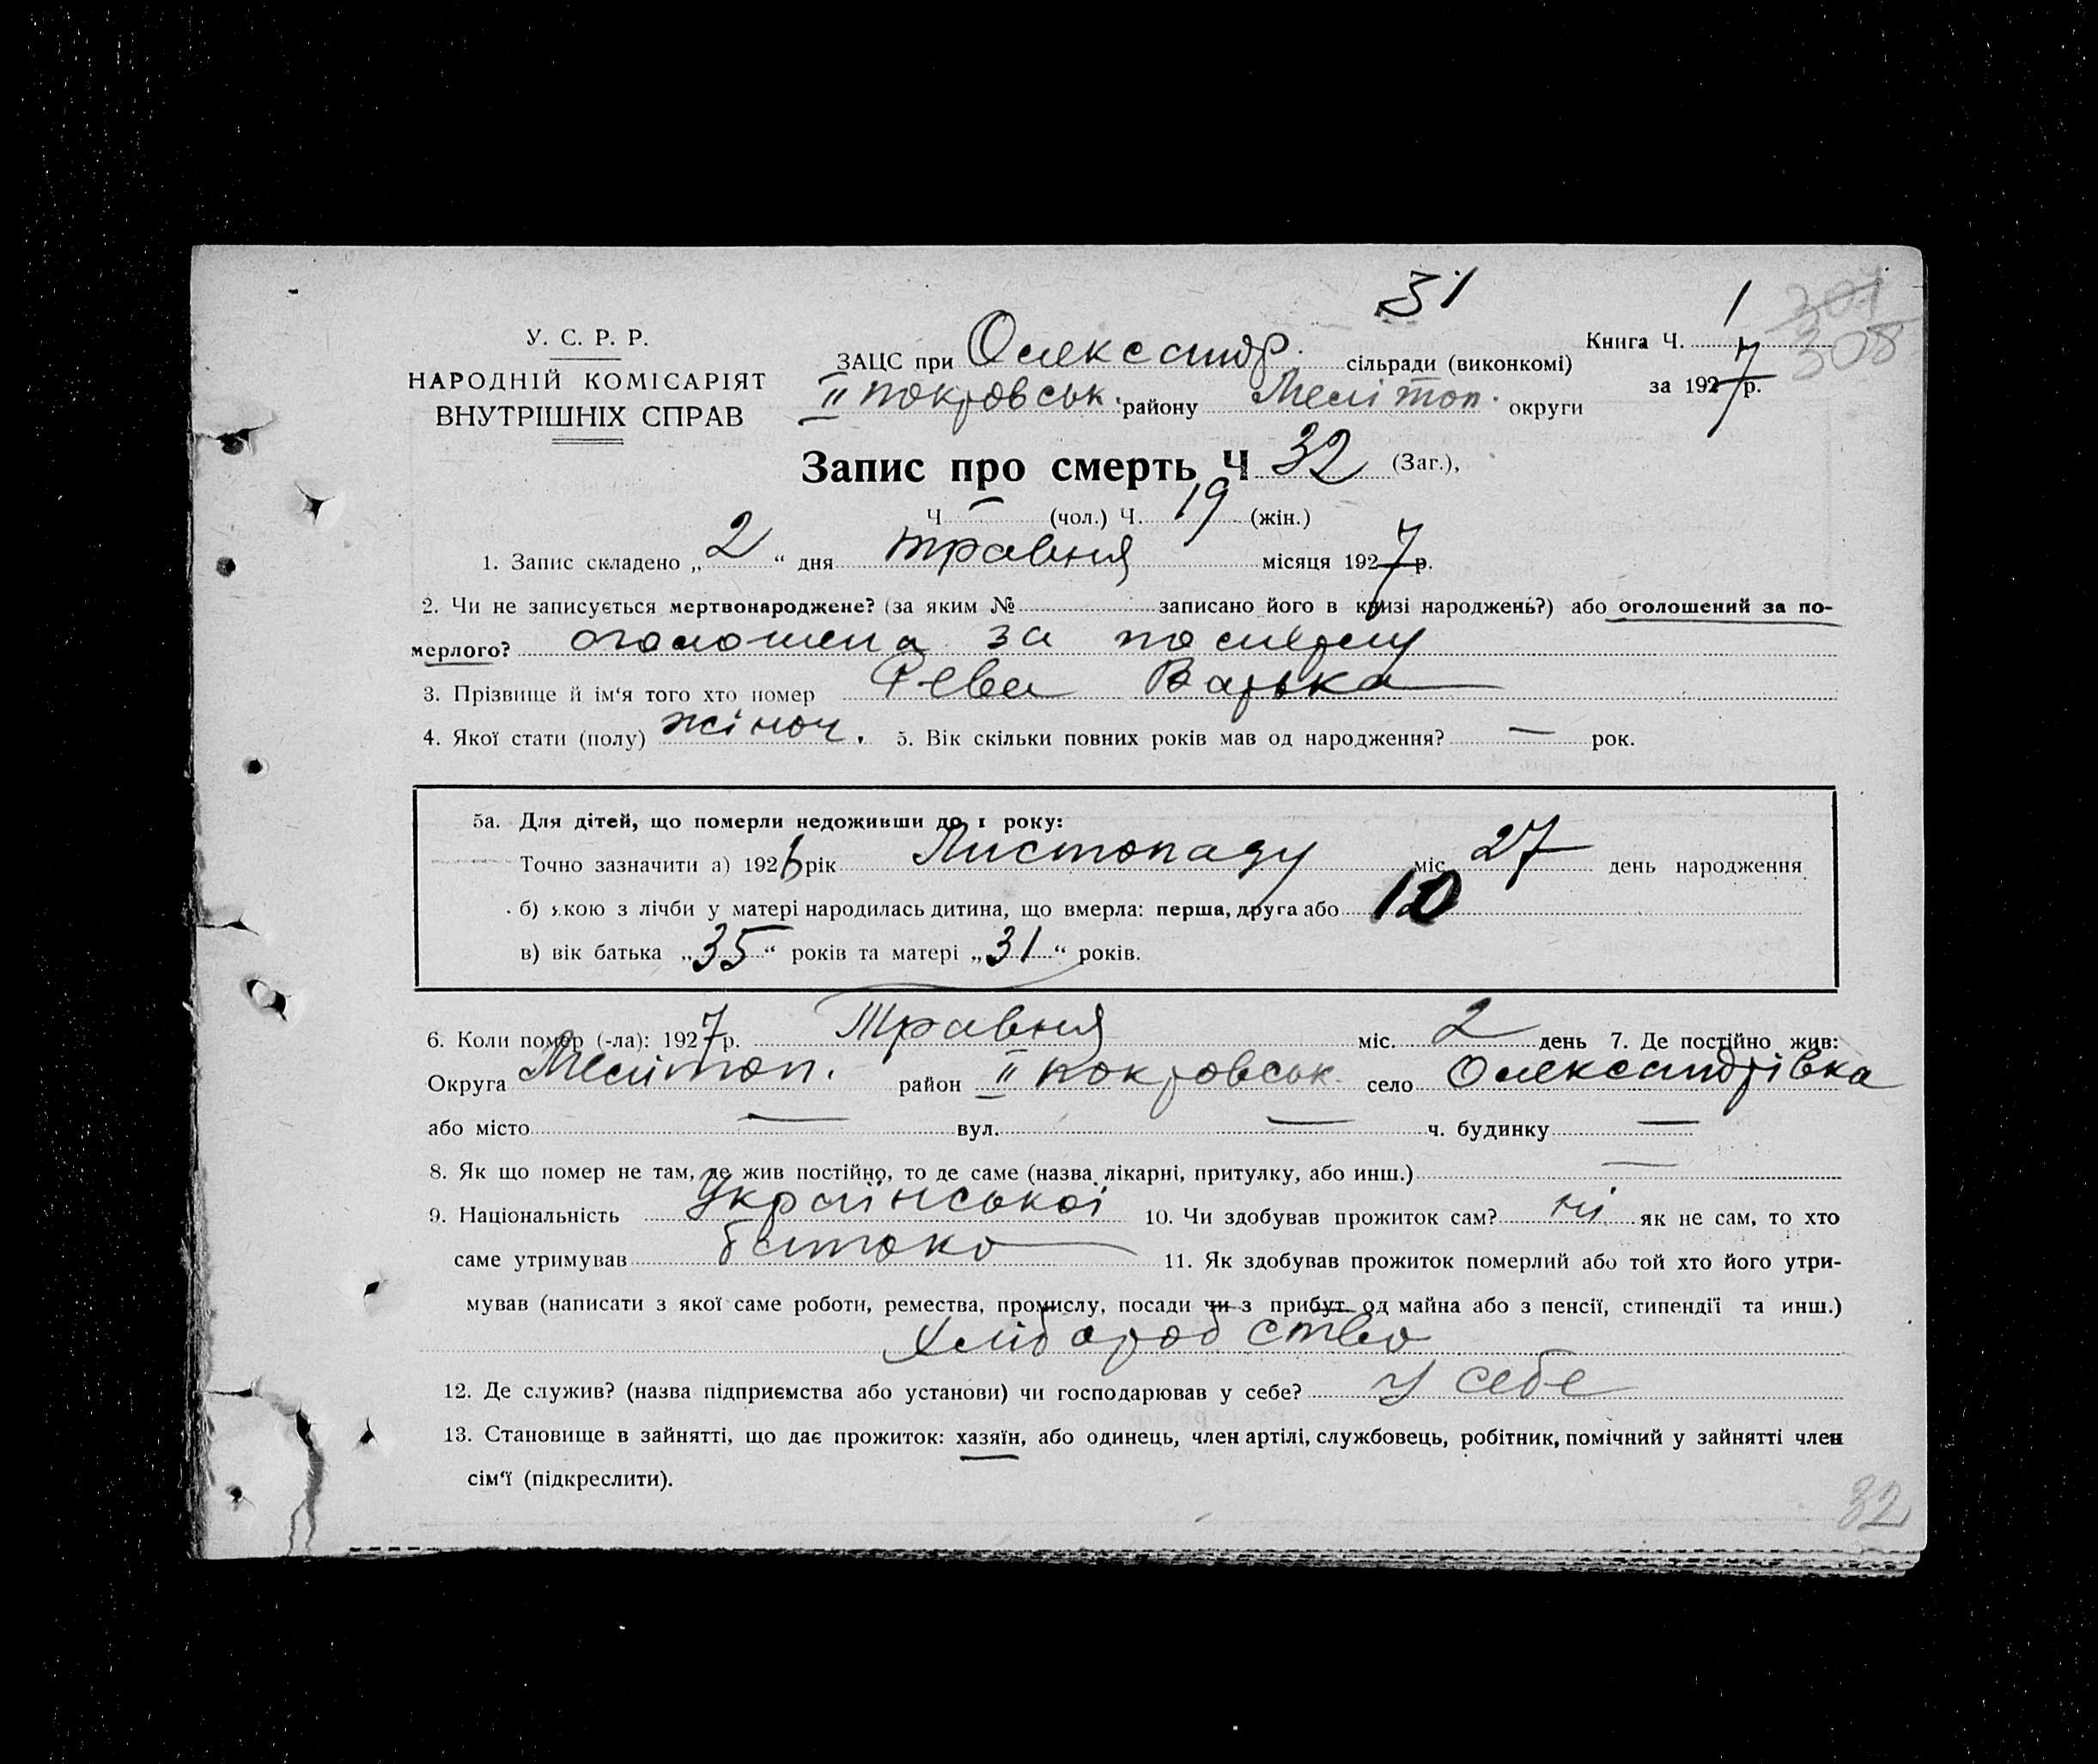 31
У. С. Р. Р.
НАРОДНІЙ КОМІСАРІЯТ
ВНУТРІШНІХ СПРАВ
ЗАЦС при Олександр. сільради (виконкомі)
Книга Ч. 1
301
308
ІІ покровськ. району Меліто­п. округи
за 1927 р.
Запис про смерть Ч 32 (Заг.),
Ч — (чол.) Ч. 19 (жін.)
1. Запис складено „ 2 “ дня травня місяця 1927 р.
2. Чи не записується мертвонароджене? (за яким № записано його в кнізі народжень?) або оголошений за по-
мерлого? оголошена за померлу
3. Прізвище й ім‘я того хто помер Рева Варька
4. Якої стати (полу) жіноч. 5. Вік скільки повних років мав од народження? — рок.
5а. Для дітей, що померли недоживши до 1 року:
Точно зазначити а) 1926 рік Листопаду міс 27 день народження
б) якою з лічби у матері народилась дитина, що вмерла: перша, друга або 10
в) вік батька „ 35 “ років та матері „ 31 “ років.
6. Коли помер (-ла): 1927 р. Травня міс. 2 день 7. Де постійно жив:
Округа Мелітоп. район ІІ покровськ. село Олександрівка
або місто — вул. — ч. будинку —
8. Як що помер не там, де жив постійно, то де саме (назва лікарні, притулку, або инш.) —
9. Національність Української 10. Чи здобував прожиток сам? ні як не сам, то хто
саме утримував батько 11. Як здобував прожиток померлий або той хто його утри-
мував (написати з якої саме роботи, ремества, промислу, посади чи з прибут. од майна або з пенсії, стипендії та инш.)
Хліборобство
12. Де служив? (назва підприємства або установи) чи господарював у себе? у себе
13. Становище в зайнятті, що дає прожиток: хазяїн, або одинець, член артілі, службовець, робітник, помічний у зайнятті член
сім‘ї (підкреслити).
32